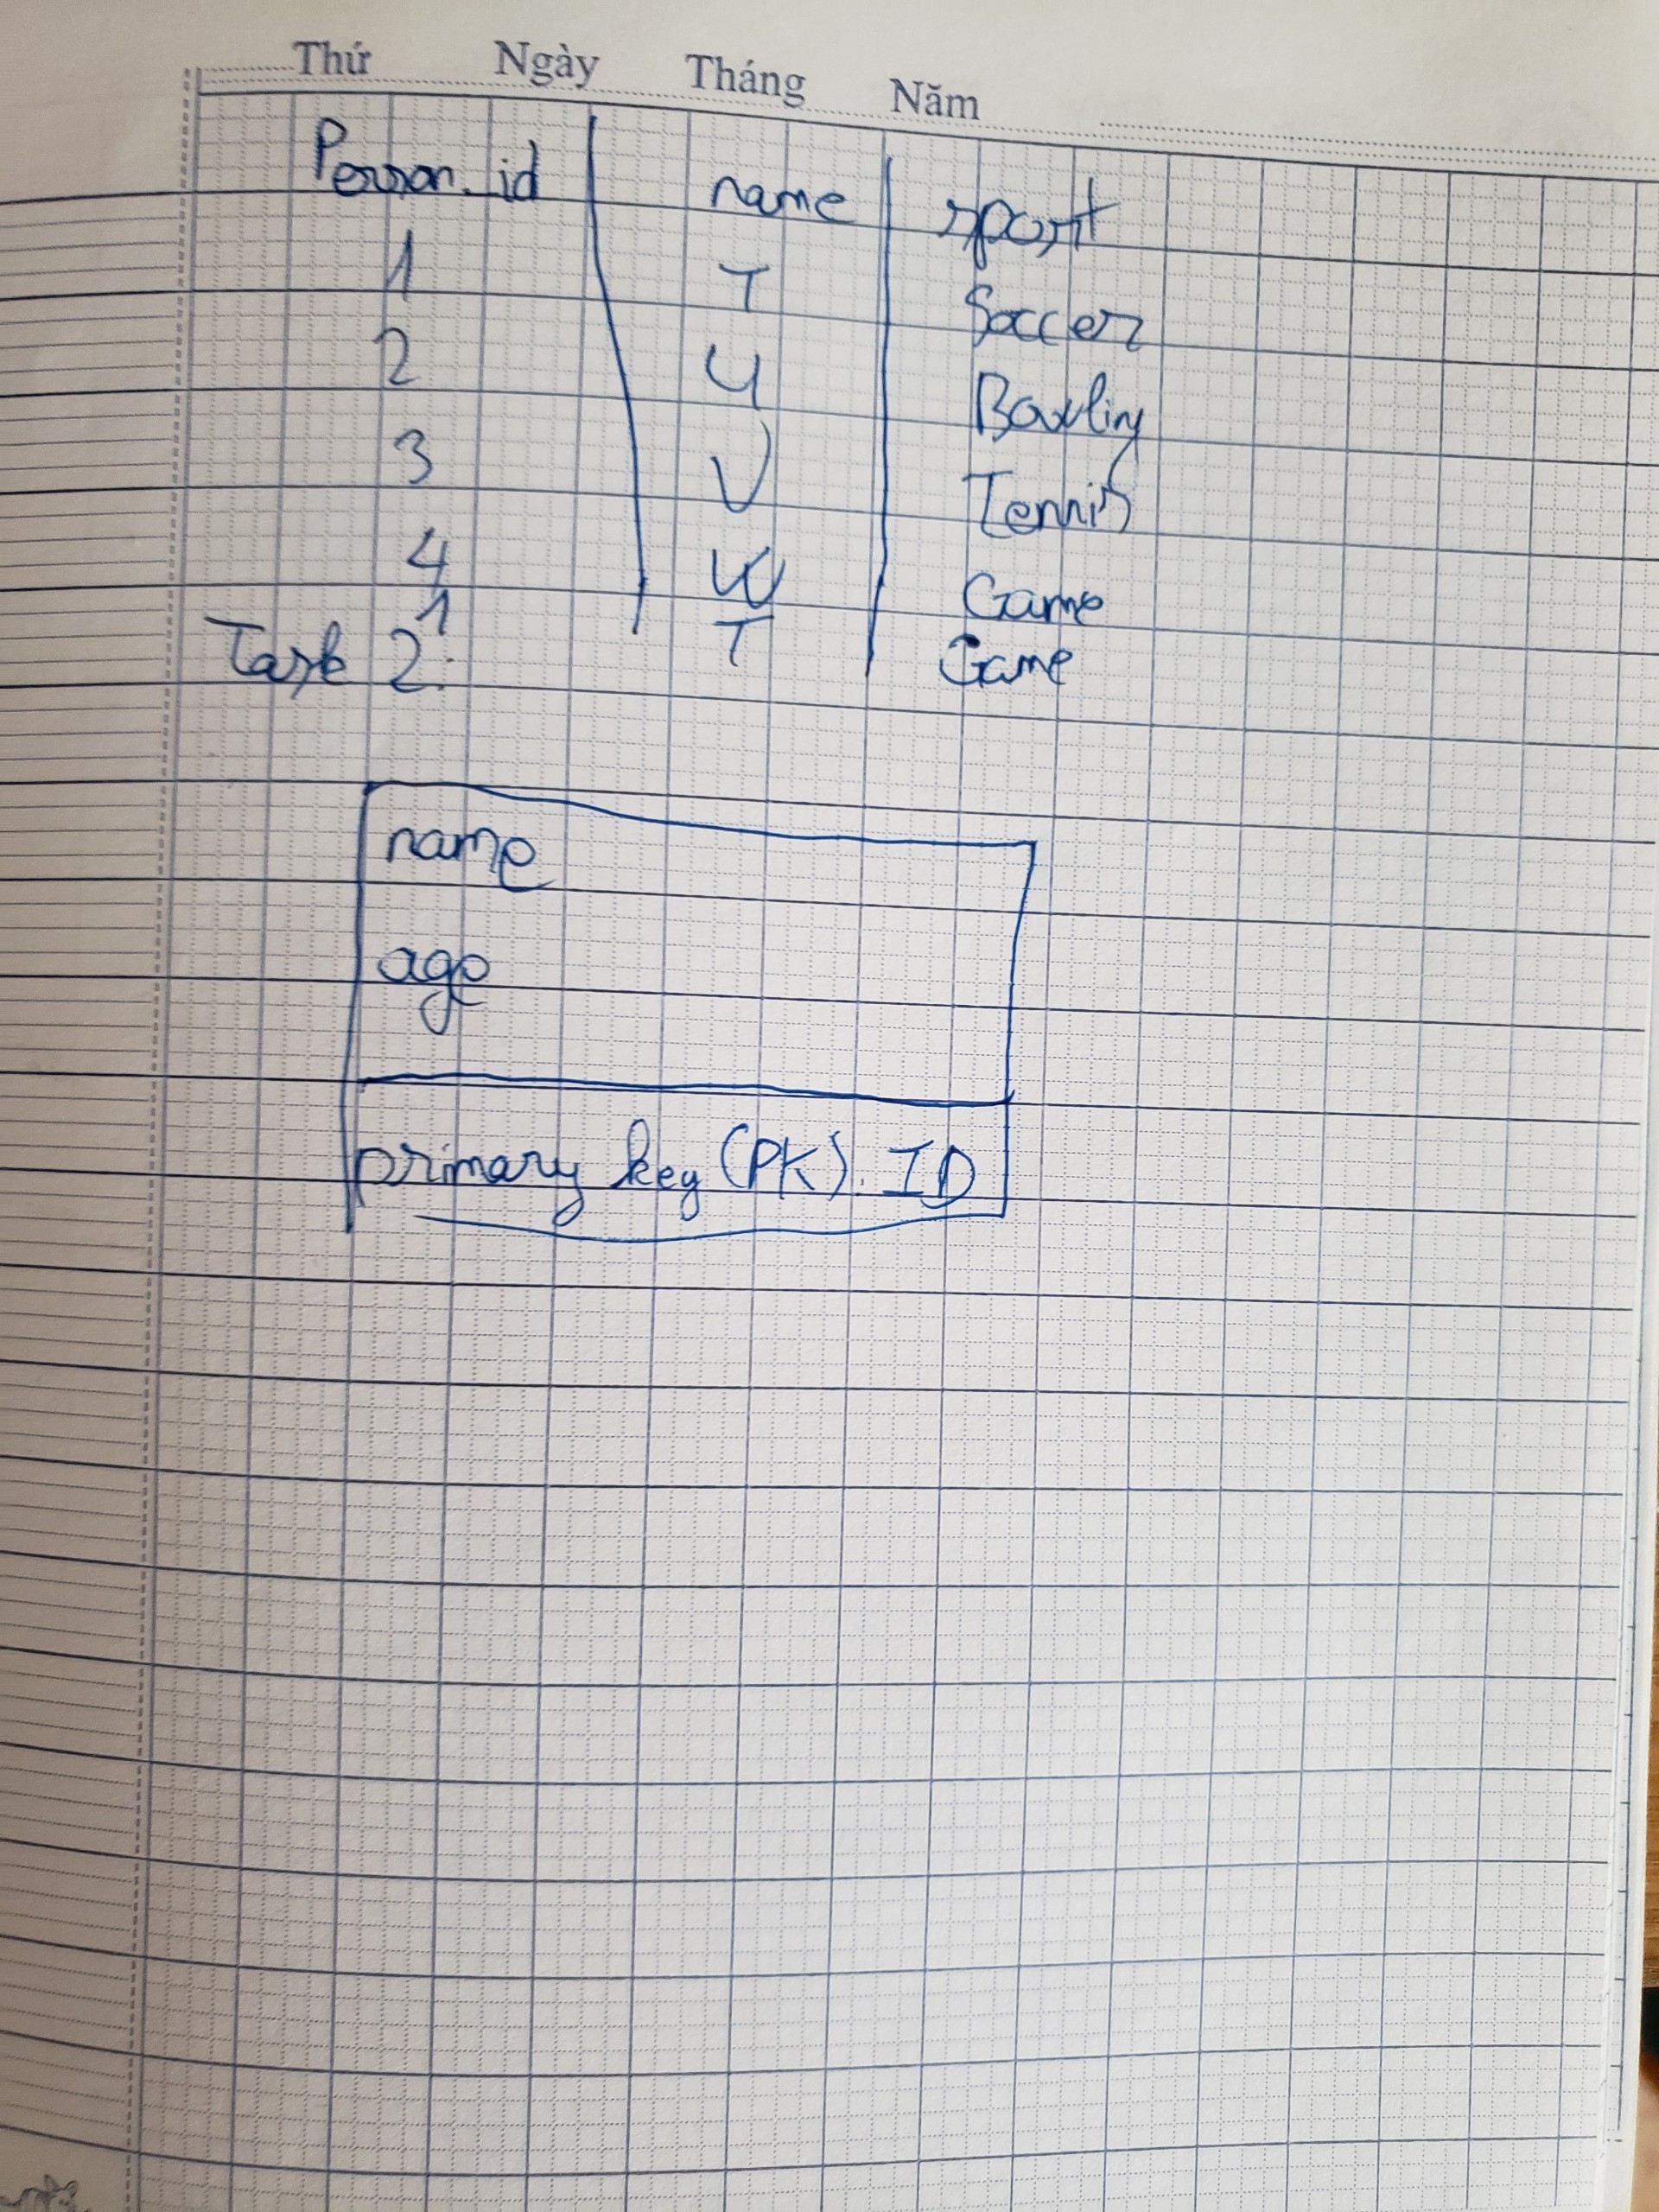 Thứ Ngày Tháng Năm
Person_id name sport
1 T Soccer
2 U Bowling
3 V Tennis
4 W Game
1 T Game
Task 2:
name
age
primary key (PK): ID